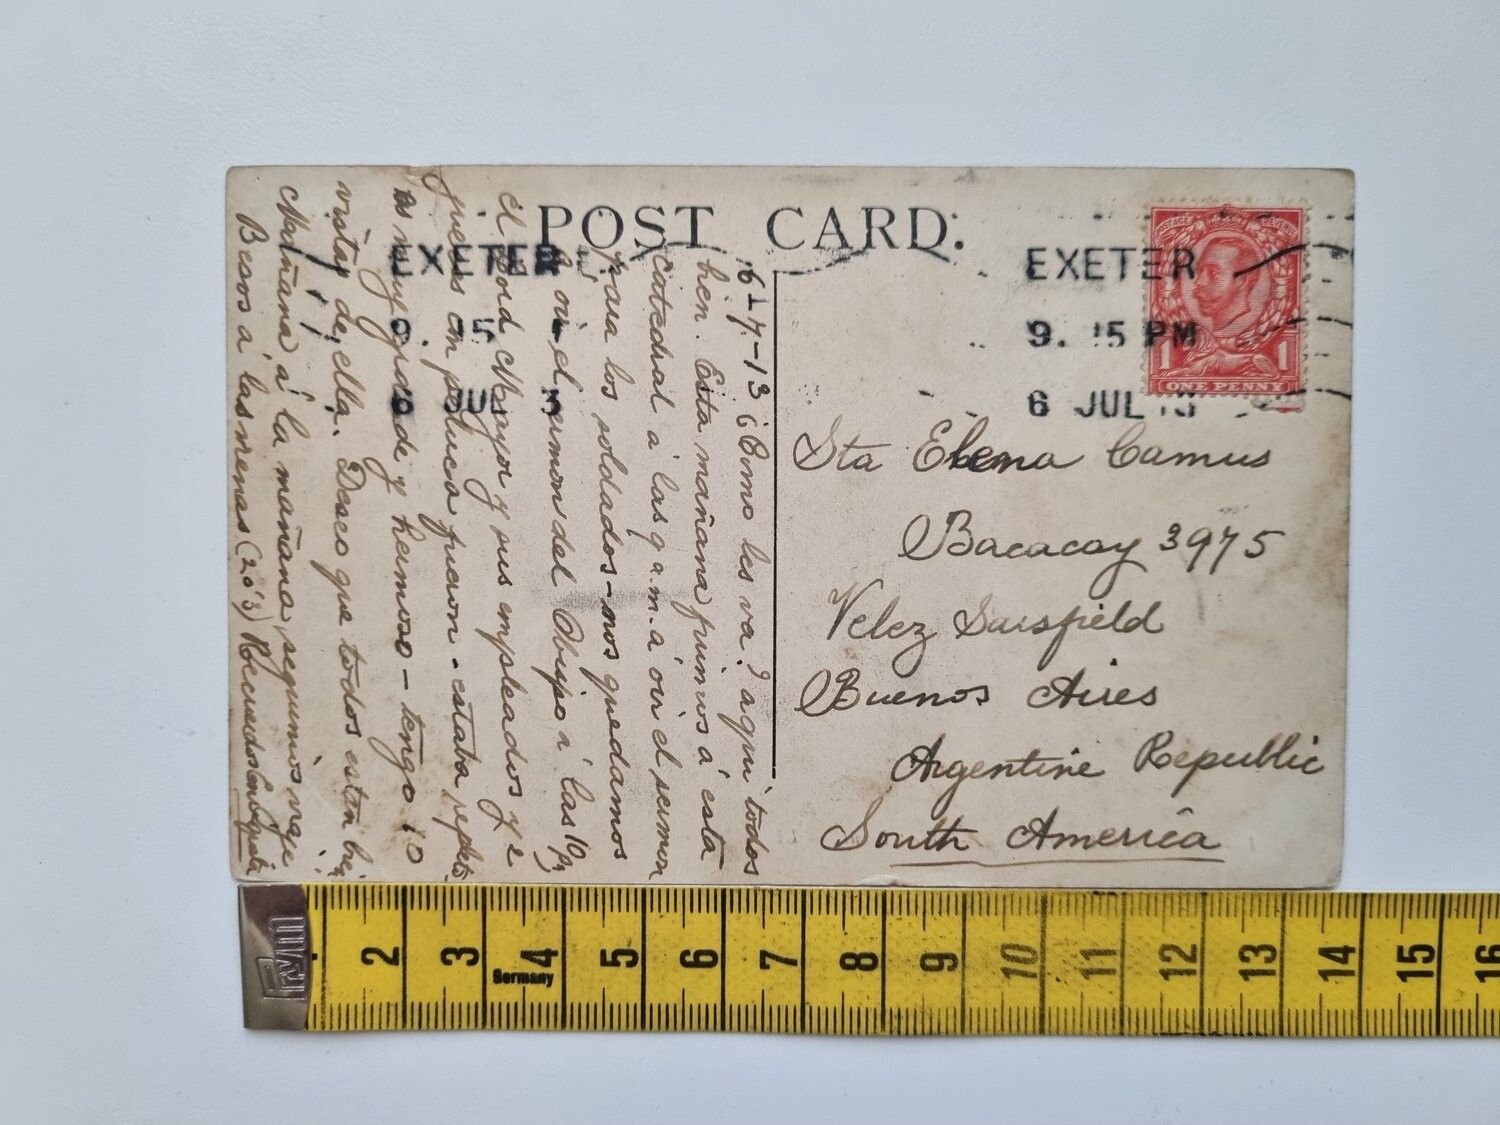 POST CARD.
EXETER
9. 15 PM
6 JUL 13
EXETER
9. 15
6 JUL 3
POSTAGE REVENUE
1 1
ONE PENNY
Sta Elena Camus
Bacacay 3975
Velez Sarsfield
Buenos Aires
Argentine Republic
South America
6-7-13 ¿Como les va? aqui todos
bien. Esta mañana fuimos á esta
catedral á las 9 a.m. á oir el sermon
para los soldados - nos quedamos
á oir el sermon del Obispo á las 10½
el Lord Mayor y sus empleados y 2
jueces con peluca fueron - estaba
es muy grande y hermoso - tengo 10
vistas de ella. Deseo que todos estan bien
Mañana á la mañana seguimos viaje
Besos á las nenas (20's) Recuerdos
Germany
2 3 4 5 6 7 8 9 10 11 12 13 14 15 16